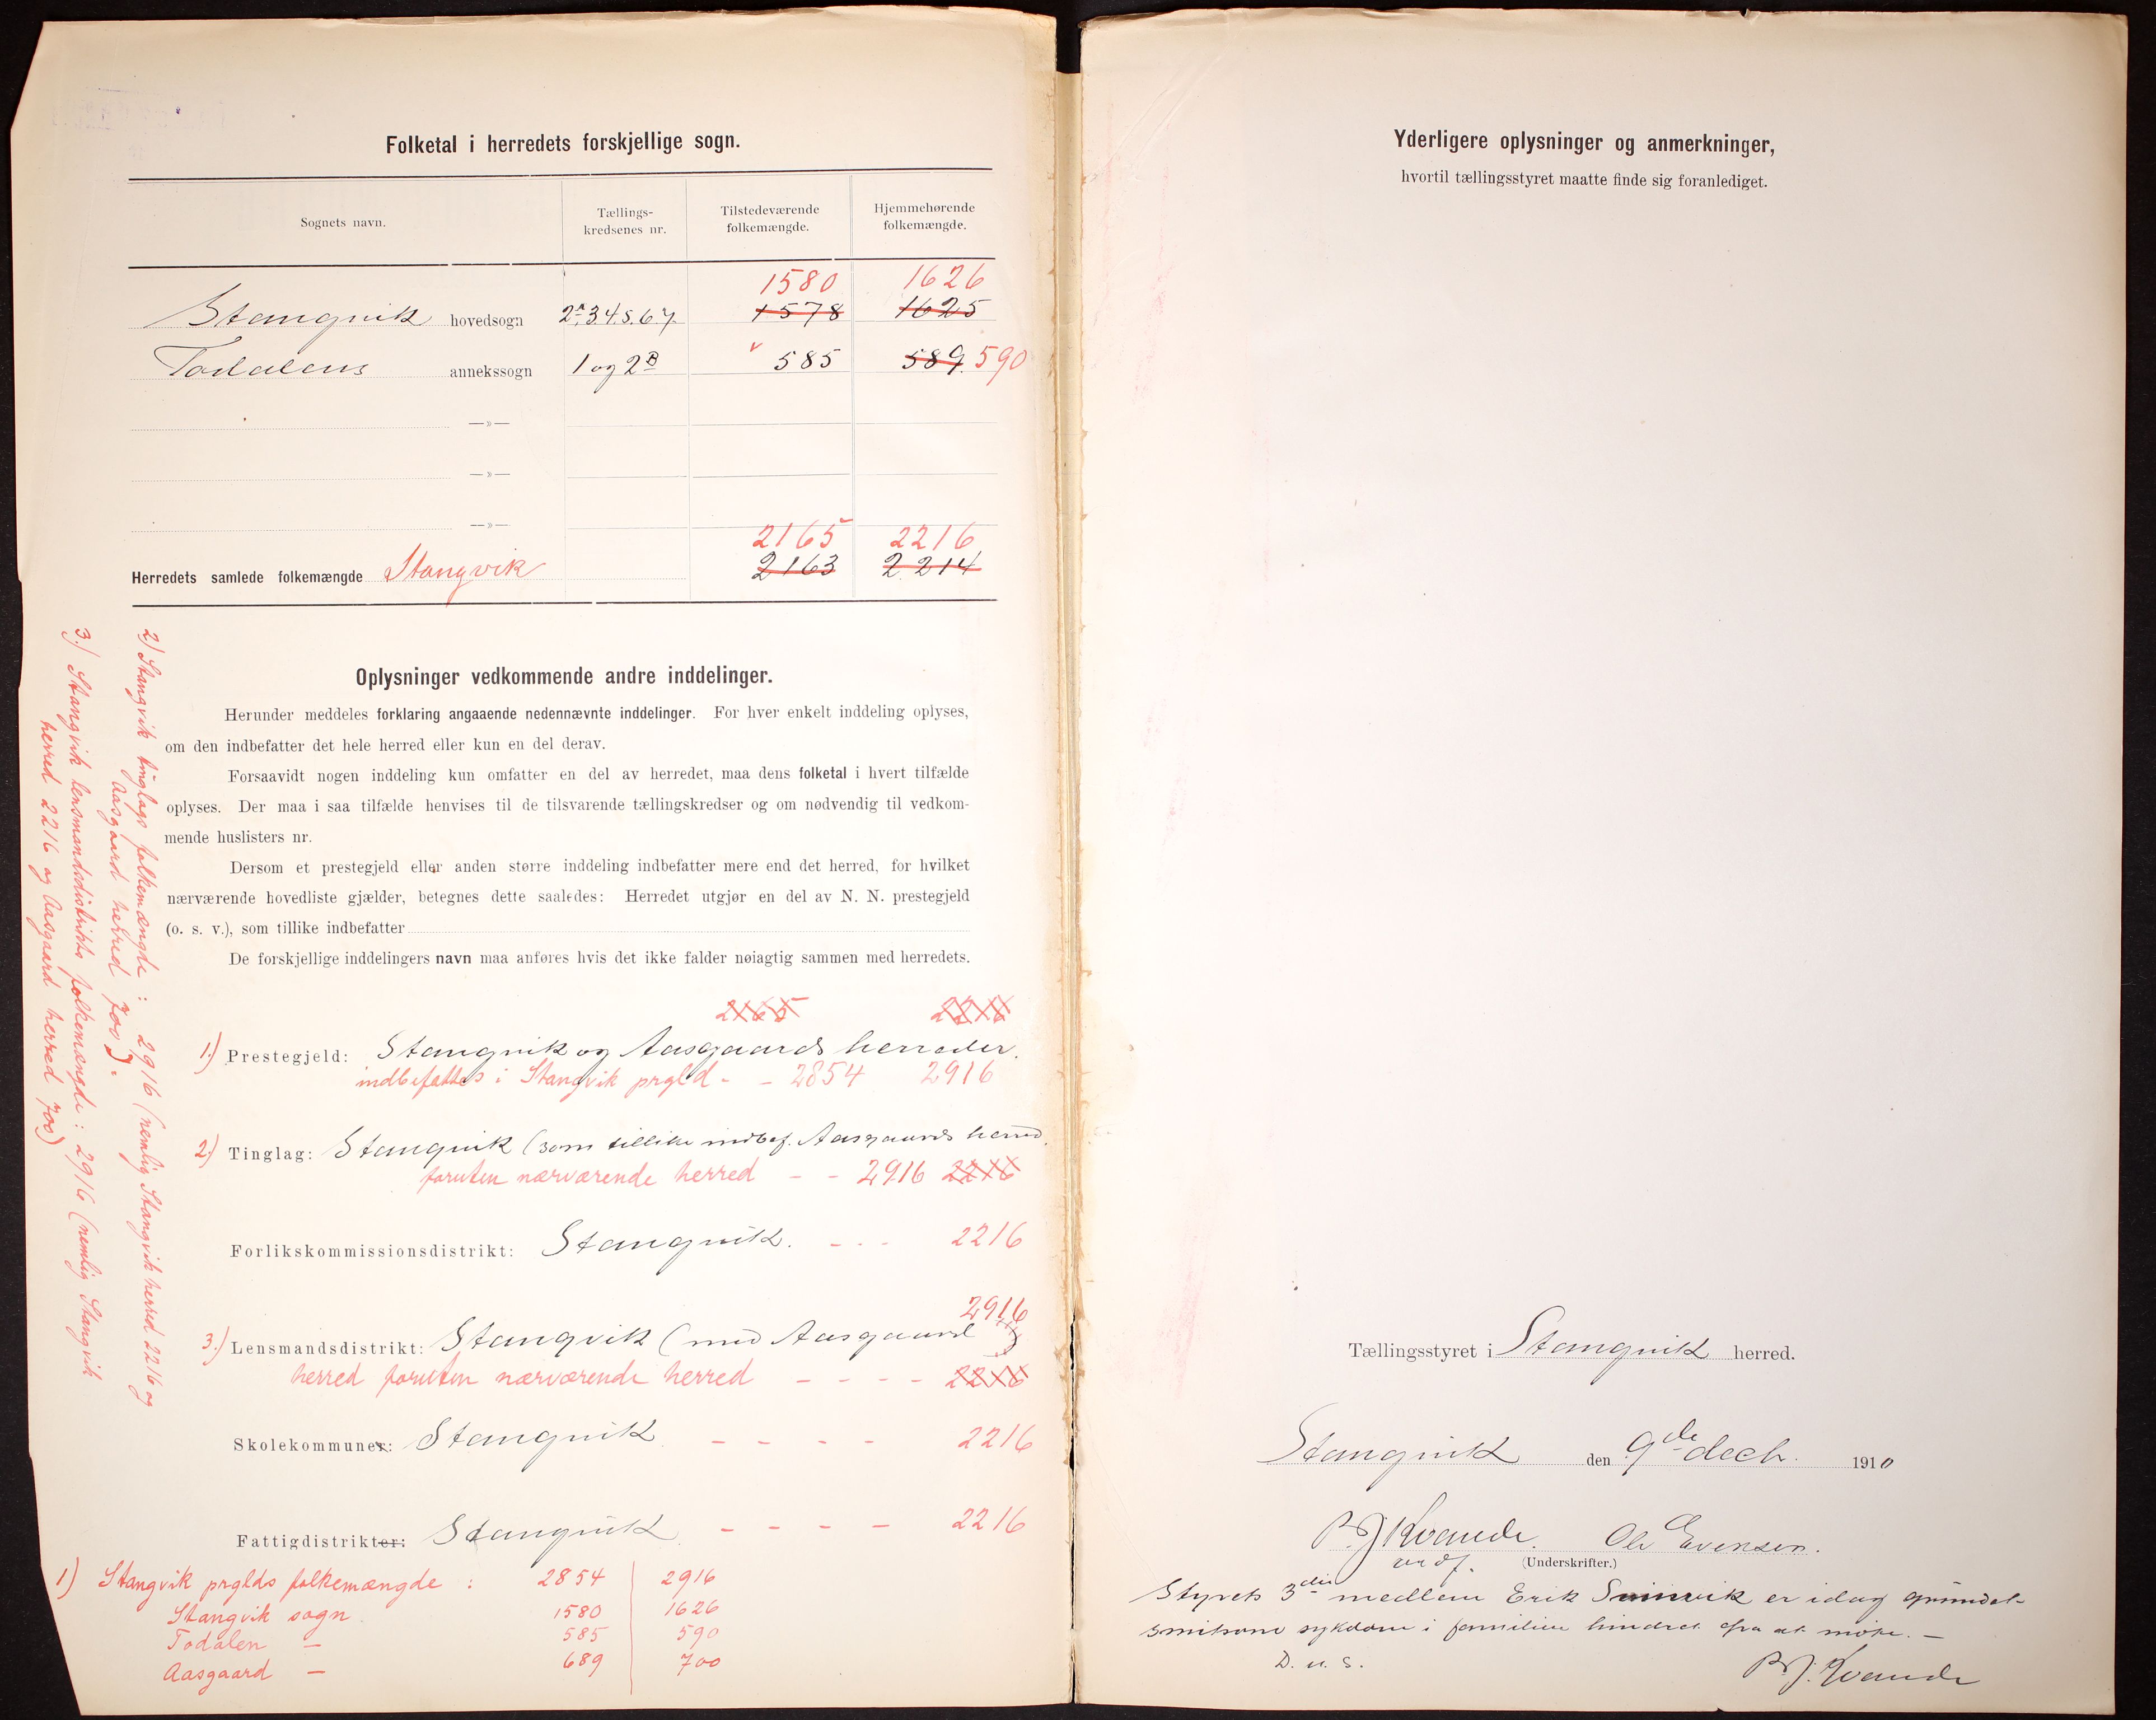 Folketal i herredets forskjellige sogn.
Sognets navn.
Tællings-
kredsenes nr.
Tilstedeværende
folkemængde.
Hjemmehørende
folkemængde.
1580 1626
Stangvik hovedsogn 2A.3.4.5.6.7. 1578 1625
Todalens annekssogn 1 og 2B 585 589. 590
—»—
—»—
—»—
2165 2216
Herredets samlede folkemængde Stangvik 2163 2214
Oplysninger vedkommende andre inddelinger.
Herunder meddeles forklaring angaaende nedennævnte inddelinger. For hver enkelt inddeling oplyses,
om den indbefatter det hele herred eller kun en del derav.
Forsaavidt nogen inddeling kun omfatter en del av herredet, maa dens folketal i hvert tilfælde
oplyses. Der maa i saa tilfælde henvises til de tilsvarende tællingskredser og om nødvendig til vedkom-
mende huslisters nr.
Dersom et prestegjeld eller anden større inddeling indbefatter mere end det herred, for hvilket
nærværende hovedliste gjælder, betegnes dette saaledes: Herredet utgjør en del av N. N. prestegjeld
(o. s. v.), som tillike indbefatter
De forskjellige inddelingers navn maa anføres hvis det ikke falder nøiagtig sammen med herredets.
2165 2216
1.) Prestegjeld: Stangvik og Aasgaards herreder.
indbefattes i Stangvik prgld - - 2854 2916
2.) Tinglag: Stangvik (som tillike indbef. Aasgaards herred.
foruten nærværende herred - - 2916 2216
Forlikskommissionsdistrikt: Stangvik. - - - 2216
2916
3.) Lensmandsdistrikt: Stangvik (med Aasgaard)
herred foruten nærværende herred - - - - 2216
Skolekommuner: Stangvik - - - - 2216
Fattigdistrikter: Stangvik - - - - 2216
1) Stangvik prglds folkemængde : 2854 2916
Stangvik sogn 1580 1626
Todalen — 585 590
Aasgaard — 689 700
2) Stangvik tinglags folkemængde : 2916 (nemlig Stangvik herred 2216 og
Aasgaard herred 700).
3.) Stangvik lensmandsdistrikts folkemængde : 2916 (nemlig Stangvik
herred 2216 og Aasgaard herred 700)
Yderligere oplysninger og anmerkninger,
hvortil tællingsstyret maatte finde sig foranlediget.
Tællingsstyret i Stangvik herred.
Stangvik den 9de decb. 1910
B J Kvande. Ole Evensen.
ordf. (Underskrifter.)
Styrets 3die medlem Erik er idag grundet
smitsom sykdom i familien hindret fra at møte. —
D. u. s.
B. J. Kvande